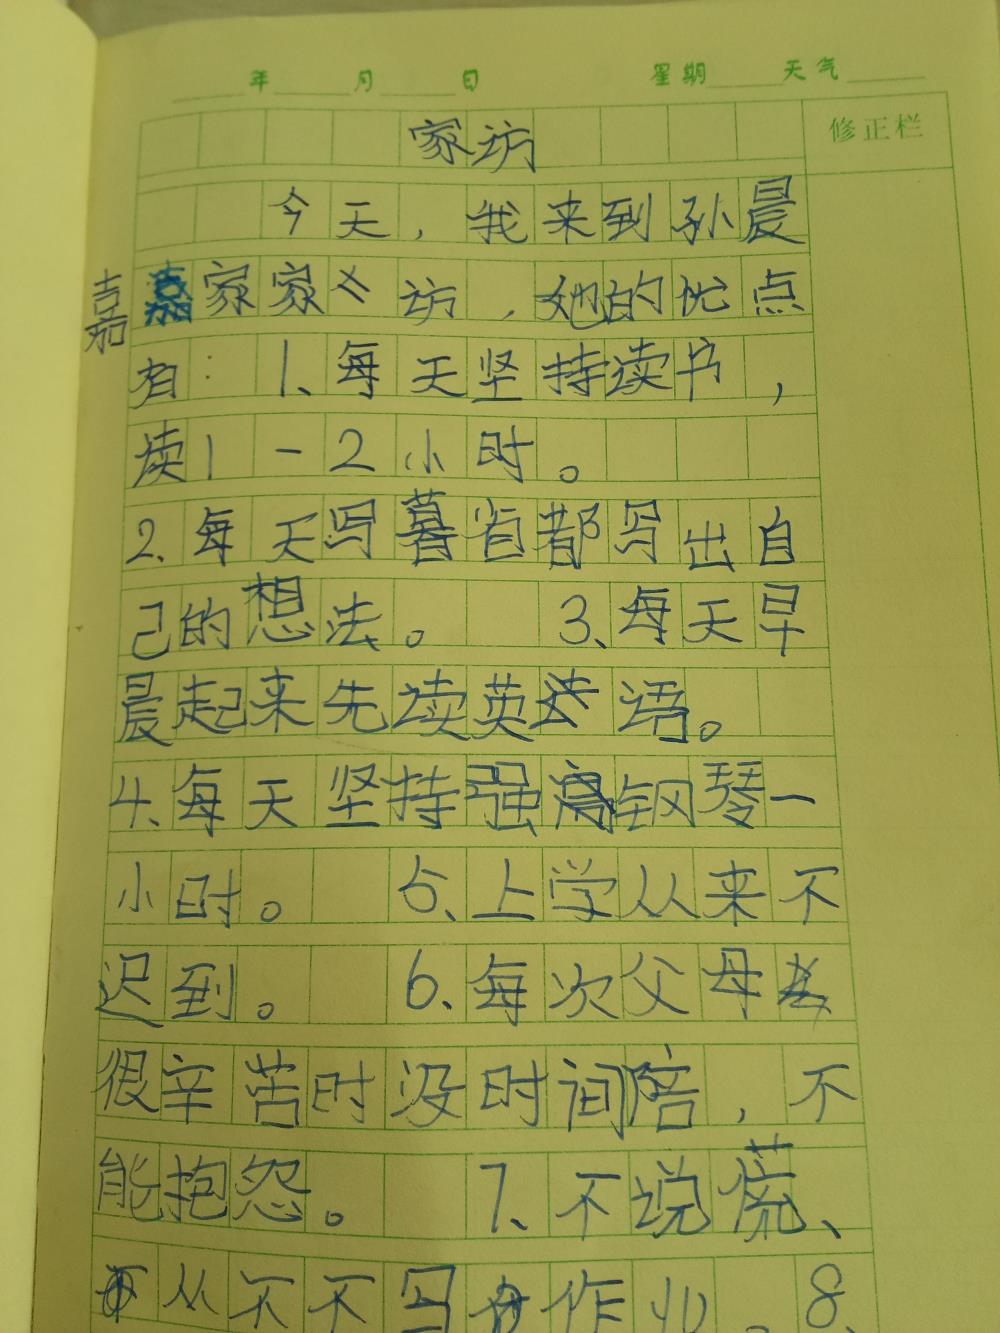 年 月 日 星期 天气
修正栏
家访
今天，我来到孙晨
嘉家家访，她的优点
有：1、每天坚持读书，
读1-2小时。
2、每天写暮省都写出自
己的想法。 3、每天早
晨起来先读英语。
4、每天坚持强钢琴一
小时。 5、上学从来不
迟到。 6、每次父母
很辛苦时没时间陪，不
能抱怨。 7、不说慌、
从不不写作业。8、